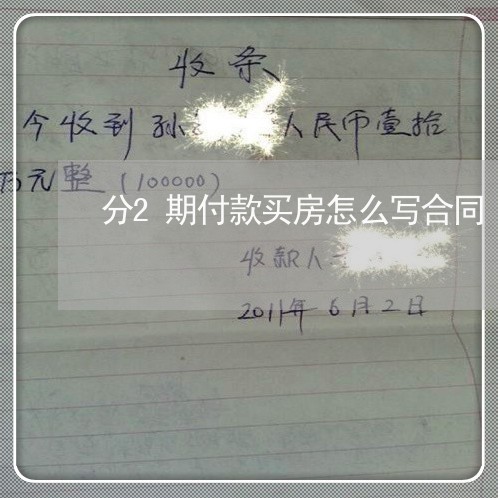 收条
今收到孙 人民币壹拾
万元整（100000）
分2 期付款买房怎么写合同
收款人
2011年6月2日